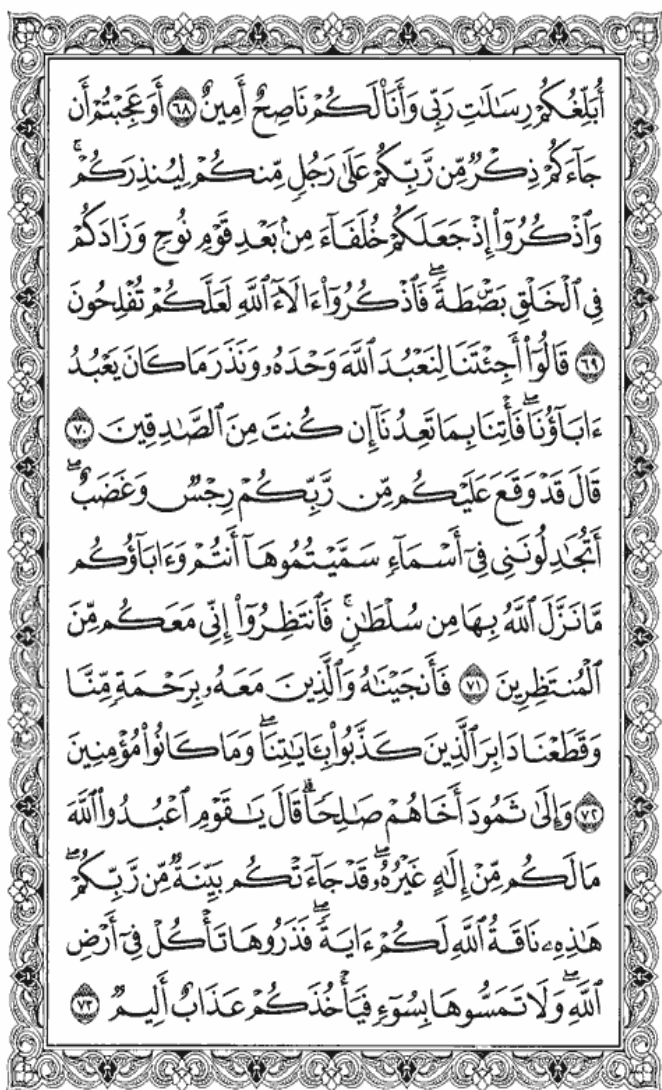 أُبَلِّغُكُمۡ رِسَٰلَٰتِ رَبِّي وَأَنَا۠ لَكُمۡ نَاصِحٌ أَمِينٌ ٦٨ أَوَعَجِبۡتُمۡ أَن
جَآءَكُمۡ ذِكۡرٞ مِّن رَّبِّكُمۡ عَلَىٰ رَجُلٖ مِّنكُمۡ لِيُنذِرَكُمۡۚ
وَٱذۡكُرُوٓاْ إِذۡ جَعَلَكُمۡ خُلَفَآءَ مِنۢ بَعۡدِ قَوۡمِ نُوحٖ وَزَادَكُمۡ
فِي ٱلۡخَلۡقِ بَصۜۡطَةٗۖ فَٱذۡكُرُوٓاْ ءَالَآءَ ٱللَّهِ لَعَلَّكُمۡ تُفۡلِحُونَ
٦٩ قَالُوٓاْ أَجِئۡتَنَا لِنَعۡبُدَ ٱللَّهَ وَحۡدَهُۥ وَنَذَرَ مَا كَانَ يَعۡبُدُ
ءَابَآؤُنَا فَأۡتِنَا بِمَا تَعِدُنَآ إِن كُنتَ مِنَ ٱلصَّٰدِقِينَ ٧٠
قَالَ قَدۡ وَقَعَ عَلَيۡكُم مِّن رَّبِّكُمۡ رِجۡسٞ وَغَضَبٌۖ
أَتُجَٰدِلُونَنِي فِيٓ أَسۡمَآءٖ سَمَّيۡتُمُوهَآ أَنتُمۡ وَءَابَآؤُكُم
مَّا نَزَّلَ ٱللَّهُ بِهَا مِن سُلۡطَٰنٖۚ فَٱنتَظِرُوٓاْ إِنِّي مَعَكُم مِّنَ
ٱلۡمُنتَظِرِينَ ٧١ فَأَنجَيۡنَٰهُ وَٱلَّذِينَ مَعَهُۥ بِرَحۡمَةٖ مِّنَّا
وَقَطَعۡنَا دَابِرَ ٱلَّذِينَ كَذَّبُواْ بِـَٔايَٰتِنَاۖ وَمَا كَانُواْ مُؤۡمِنِينَ
٧٢ وَإِلَىٰ ثَمُودَ أَخَاهُمۡ صَٰلِحٗاۚ قَالَ يَٰقَوۡمِ ٱعۡبُدُواْ ٱللَّهَ
مَا لَكُم مِّنۡ إِلَٰهٍ غَيۡرُهُۥۖ قَدۡ جَآءَتۡكُم بَيِّنَةٞ مِّن رَّبِّكُمۡۖ
هَٰذِهِۦ نَاقَةُ ٱللَّهِ لَكُمۡ ءَايَةٗۖ فَذَرُوهَا تَأۡكُلۡ فِيٓ أَرۡضِ
ٱللَّهِۖ وَلَا تَمَسُّوهَا بِسُوٓءٖ فَيَأۡخُذَكُمۡ عَذَابٌ أَلِيمٞ ٧٣